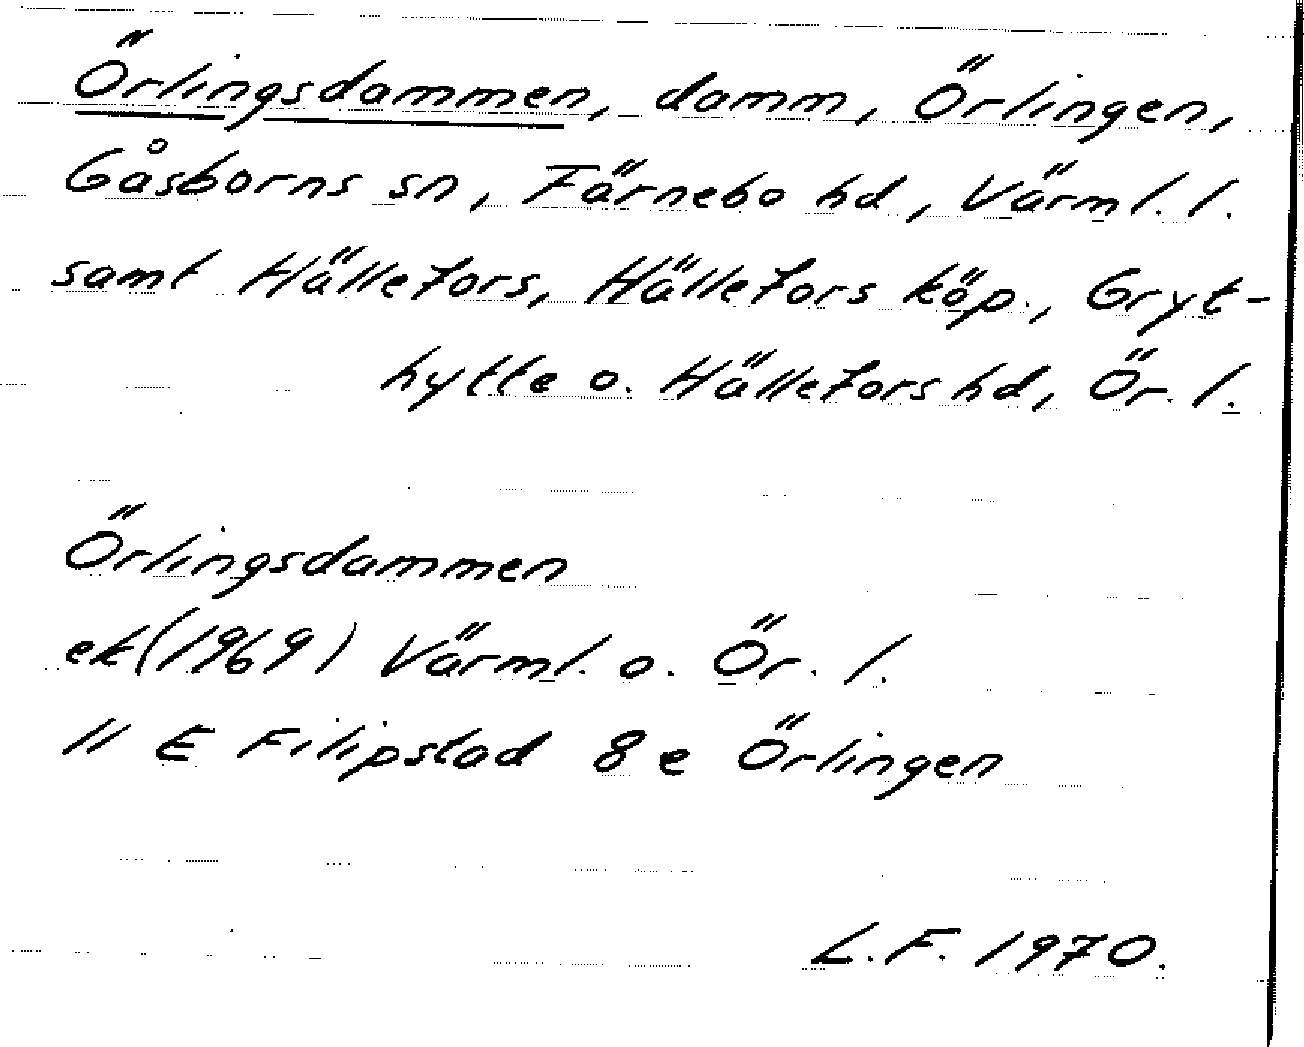 Örlingsdammen, damm, Örlingen,
Gåsborns sn, Färnebo hd, Värml. l.
samt Hällefors, Hällefors köp., Gryt-
hytte o. Hällefors hd, Ör. l.
Örlingsdammen
ek (1969) Värml. o. Ör. l.
11 E Filipstad 8 e Örlingen
L.F. 1970.